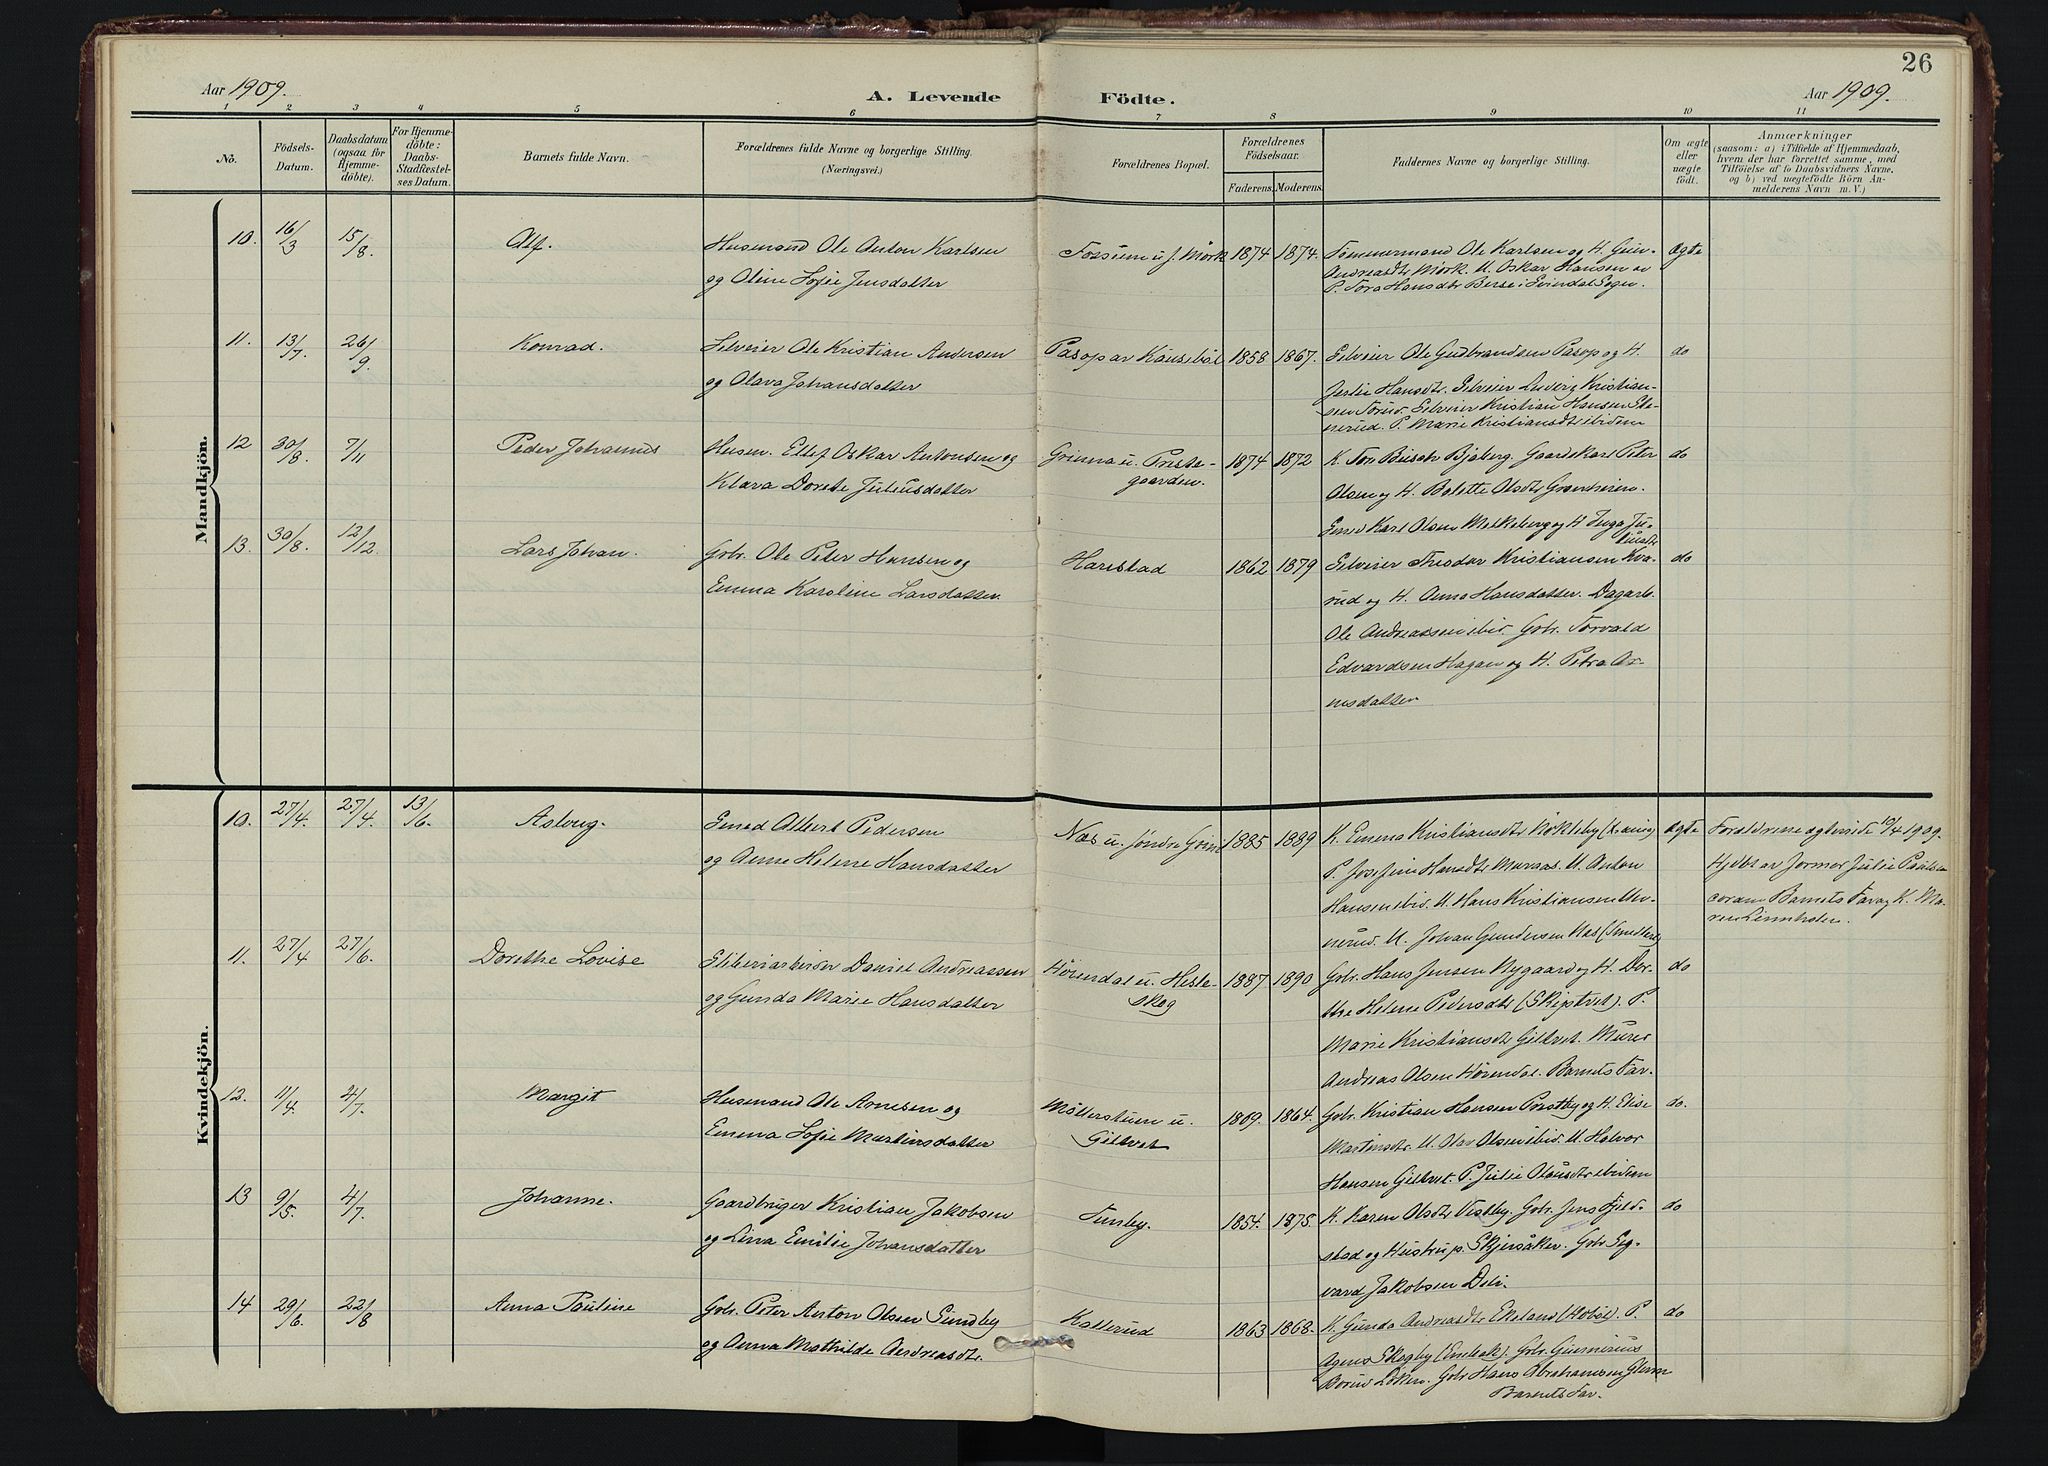 26
Aar 1909.
A. Levende Födte.
Aar 1909.
1 2 3 4 5 6 7 8 9 10 11
No.
Födsels-
Datum.
Daabsdatum
(ogsaa for
Hjemme-
döbte).
For Hjemme-
döbte:
Daabs-
Stadfæstel-
ses Datum.
Barnets fulde Navn.
Forældrenes fulde Navne og borgerlige Stilling.
(Næringsvei.)
Forældrenes Bopæl.
Forældrenes
Födselsaar.
Faderens. Moderens.
Faddernes Navne og borgerlige Stilling.
Om ægte
eller
uægte
födt.
Anmærkninger
(saasom: a) i Tilfælde af Hjemmedaab,
hvem der har forrettet samme, med
Tilföielse af to Daabsvidners Navne,
og b) ved uægtefödte Börn An-
melderens Navn m. V.)
Mandkjön.
10. 16/3 15/8. Alf. Husmand Ole Anton Karlsen
og Oline Sofie Jensdatter
u. J. Mörk 1874 1874.
Tömmermand Ole Karlsen og H.
Andreasdtr Mörk. U. Oskar Hansen
P. Tora Hansdtr Berse i Svindal Sogn.
Ægte
11. 13/7. 26/9. Konrad. Selveier Ole Kristian Andersen
og Olava Johansdatter
Pasop av 1858 1867.
Selveier Ole Gudbrandsen Pasop og H.
Hansdtr. Selveier Ludvig Kristian-
sen Selveier Kristian Hansen Ste-
nerud. P. Marie Kristiansdtr ibidem
do
12 30/8. 7/11 Peder Johannes Husm. Ellef Oskar Antonsen og
Klara Dorete Juliusdatter
Grima u. Preste-
gaarden. 1874 1872
K. Bjöberg. Gaardskarl Peter
Olsen og H. Bolette Olsdtr
Karl Olsen og H. Inga Ju-
liusdtr
do
13. 30/8. 12/12. Lars Johan. Gbr. Ole Peter Hansen og
Emma Karoline Larsdatter.
Harestad 1862 1879
Selveier Theodor Kristiansen Kva-
rud og H. Anna Hansdatter. Dagarb.
Ole Andreassen ibid. Gbr. Torvald
Edvardsen Hagan og H. Petra Ar-
nesdatter
do
Kvindekjön.
10. 27/4. 27/4. 13/6. Aslaug. Smed Albert Pedersen
og Anne Helene Hansdatter
Næs u. Söndre 1885 1889
K. Emma Kristiansdtr
P. Josefine Hansdtr U. Anton
Hansen ibid. U. Hans Kristiansen
nerud. U. Johan Gundersen Næs
Ægte
Forældrene egteviede 10/4 1909.
Hjdbt av Jormor Julie Paulsen
coram Barnets Far og K. Ma-
ren
11. 27/4 27/6. Dorethe Lovise Sliberiarbeider Daniel Andreassen
og Gunda Marie Hansdatter
Hörendal u. Heste-
skog 1887 1890
Gbr. Hans Jensen Nygaard og H. Dor-
thea Helene Pedersdtr (Skiptvet). P.
Marie Kristiansdtr Giltvet. Murer
Andreas Olsen Hörendal. Barnets Far.
do
12. 11/4 4/7. Margit Husmand Ole Arnesen og
Emma Sofie Martinsdatter
u.
Giltvet 1869. 1864.
Gbr. Kristian Hansen Prestby og H. Elise
Martinsdtr. U. Olav Olsen ibid. U. Halvor
Hansen Giltvet. P. Julie Olausdtr ibidem
do.
13 9/5. 4/7. Johanne. Gaardbruger Kristian Jakobsen
og Lina Emilie Johansdatter
Sunby. 1854. 1875.
K. Karen Olsdtr Vestby. Gbr. Jens Fjeld-
stad og Hustru p. Skjersåker. Gbr. Sig-
vard Jakobsen Deli.
do
14 29/6. 22/8 Anna Pauline Gbr. Peter Anton Olsen Sundby
og Anna Mathilde Andreasdtr.
Kallerud 1863 1868.
K. Gunda Andreasdtr. Ekeland (Hobøl). P.
Agnes Skogby (Enebak). Gbr.
Löken. Gbr Hans Abrahamsen
Barnets Far.
do